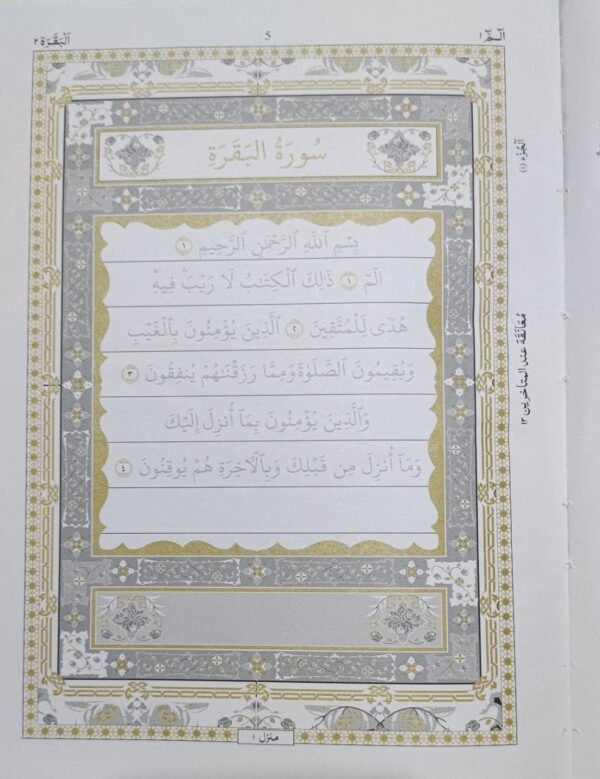 الٓـمّٓ ١
5
اَلْبَقَرَة ٢
سُورَةُ الْبَقَرَةِ
بِسْمِ اللَّهِ الرَّحْمَٰنِ الرَّحِيمِ ١
الٓمٓ ١ ذَٰلِكَ الْكِتَٰبُ لَا رَيْبَ ۛ فِيهِ ۛ
هُدًى لِلْمُتَّقِينَ ٢ الَّذِينَ يُؤْمِنُونَ بِالْغَيْبِ
وَيُقِيمُونَ الصَّلَوٰةَ وَمِمَّا رَزَقْنَٰهُمْ يُنفِقُونَ ٣
وَالَّذِينَ يُؤْمِنُونَ بِمَآ أُنزِلَ إِلَيْكَ
وَمَآ أُنزِلَ مِن قَبْلِكَ وَبِالْآخِرَةِ هُمْ يُوقِنُونَ ٤
منزل ١
الجُزء (١)
مُعَانَقَة عند المتأخرين ١٢